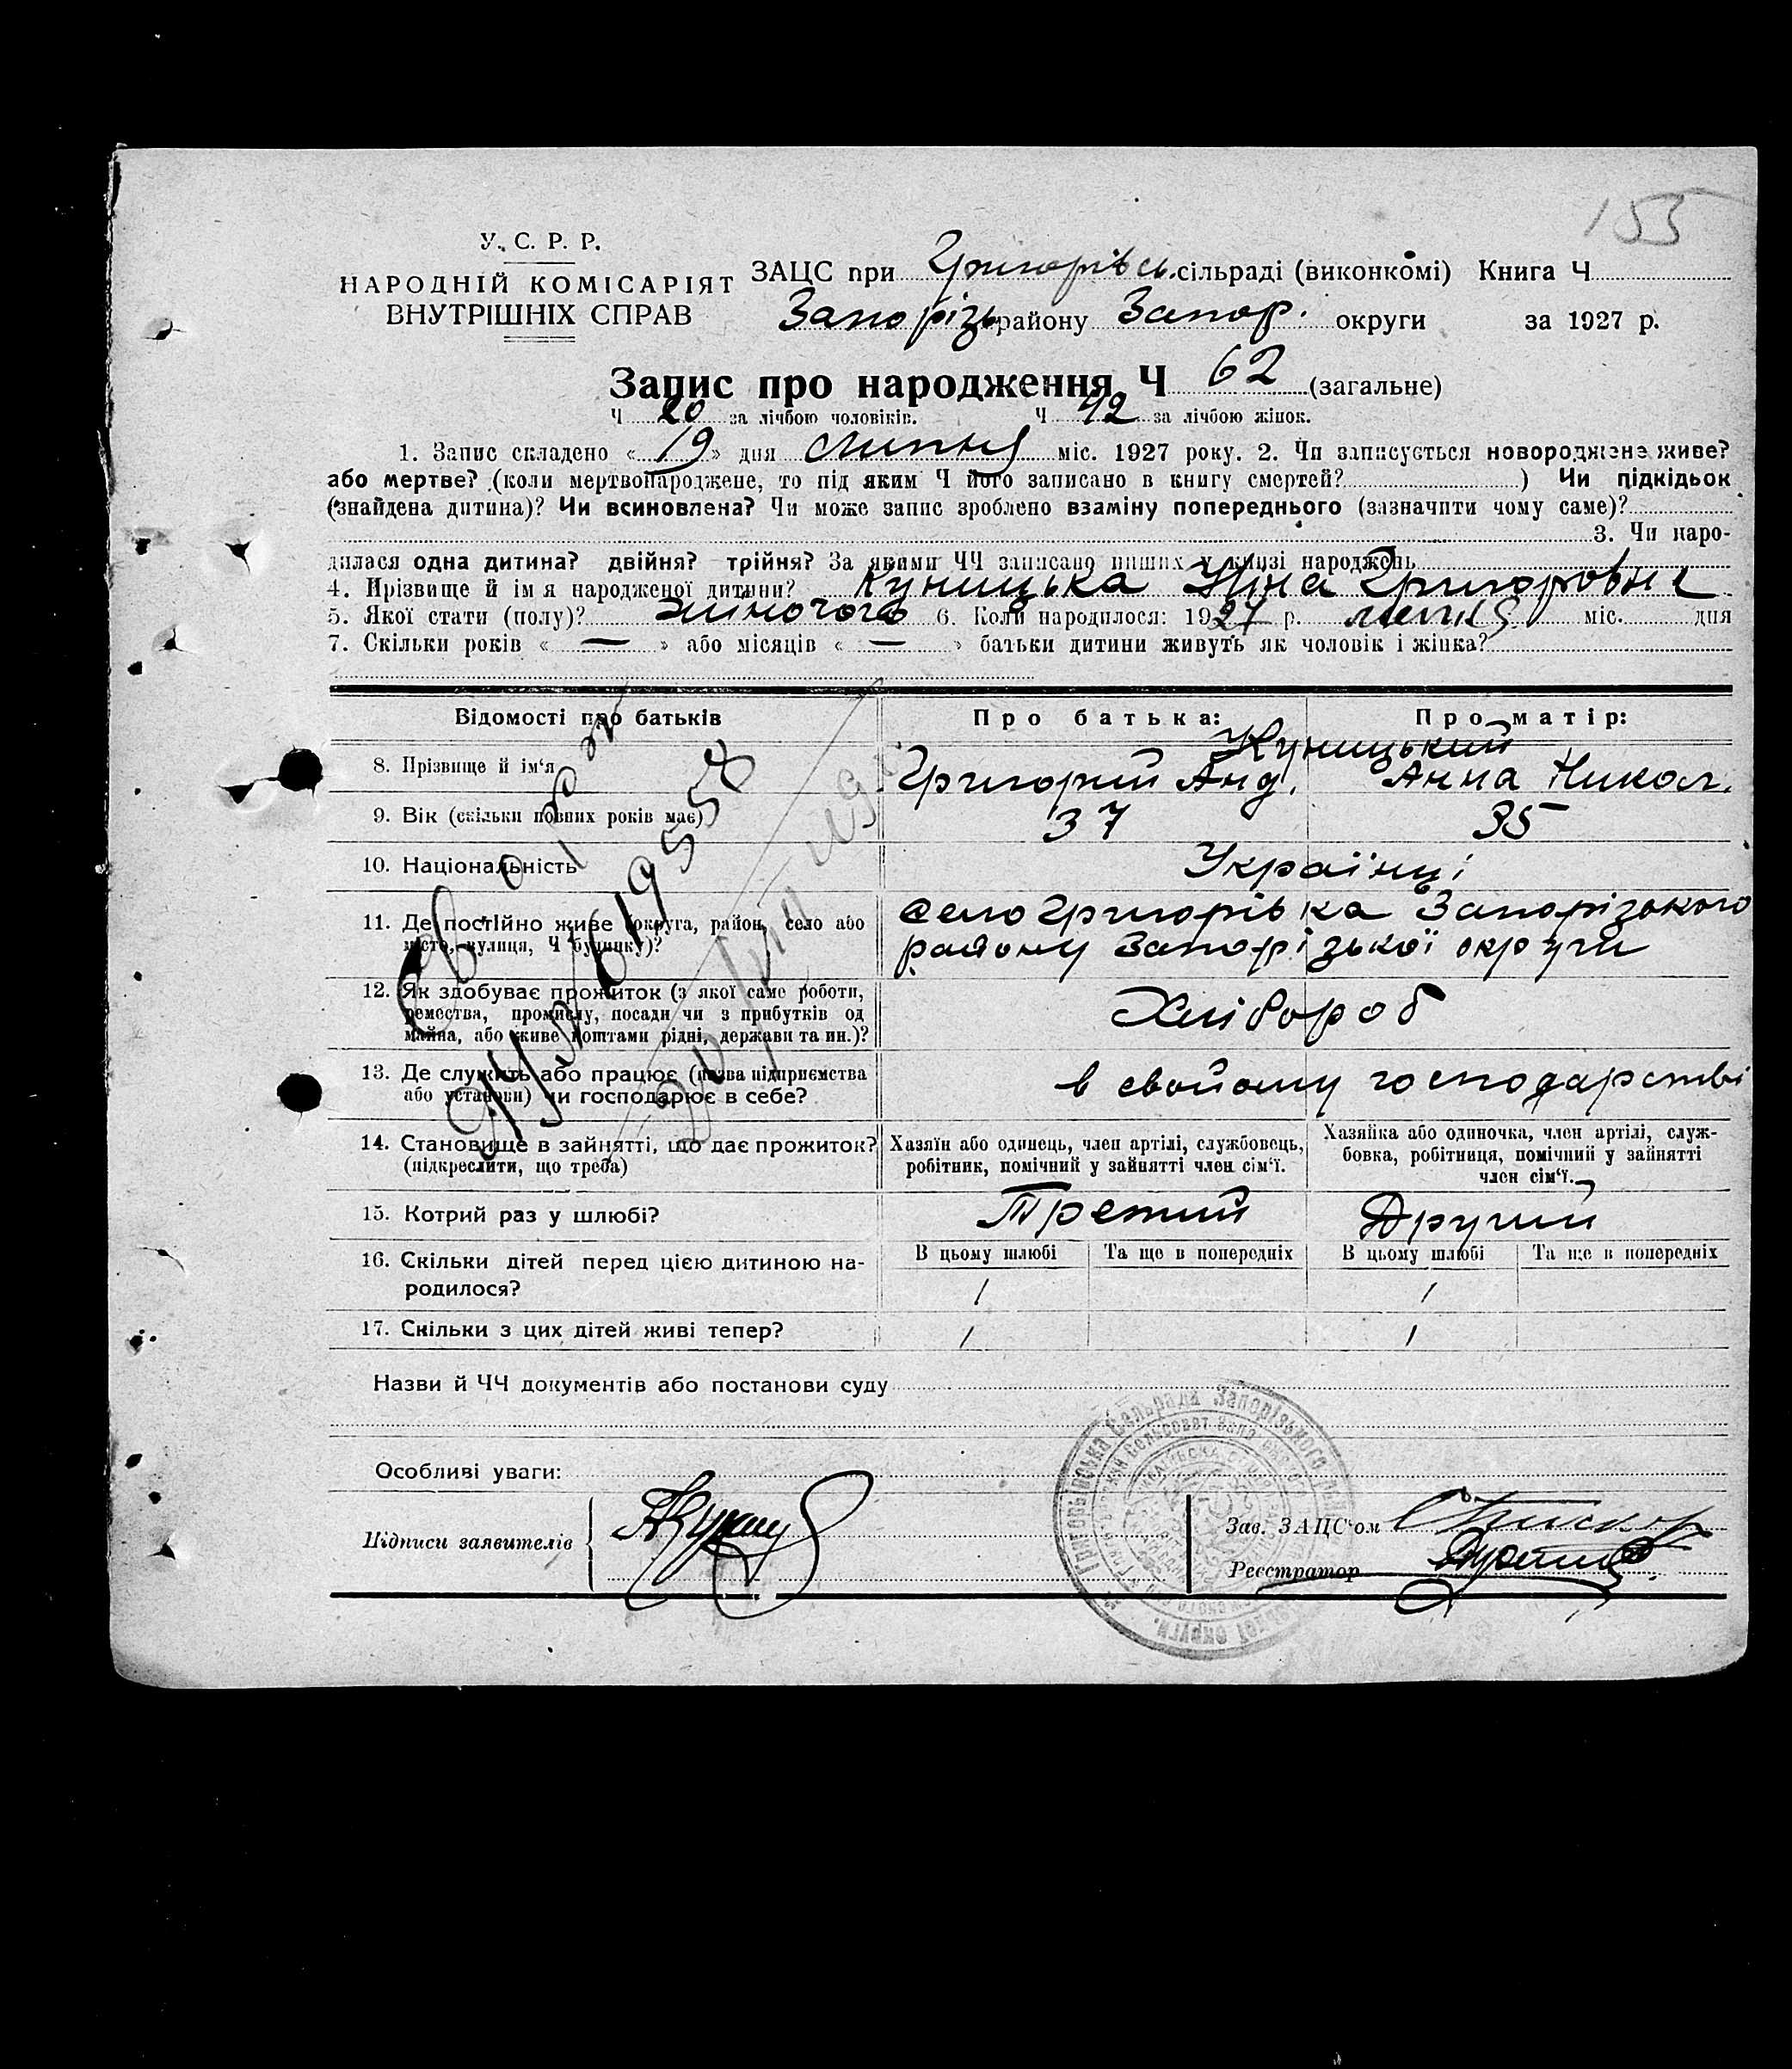 155
У. С. Р. Р.
НАРОДНІЙ КОМІСАРІЯТ
ВНУТРІШНІХ СПРАВ
ЗАЦС при Григорівсь. сільраді (виконкомі) Книга Ч
Запорізь району Запор. округи за 1927 р.
Запис про народження Ч 62 (загальне)
Ч 20 за лічбою чоловіків. Ч 42 за лічбою жінок.
1. Запис складено « 19 » дня липня міс. 1927 року. 2. Чи записується новороджене живе?
або мертве? (коли мертвонароджене, то під яким Ч його записано в книгу смертей? ) Чи підкідьок
(знайдена дитина)? Чи всиновлена? Чи може запис зроблено взаміну попереднього (зазначити чому саме)?
3. Чи наро-
дилася одна дитина? двійня? трійня? За якими ЧЧ записано инших у книзі народжень
4. Прізвище й ім я народженої дитини? Куницька Ніна Григоровна
5. Якої стати (полу)? жіночого 6. Коли народилося: 1927 р. липня міс. дня
7. Скільки років « — » або місяців « — » батьки дитини живуть як чоловік і жінка?
Відомості про батьків
Про батька:
Про матір:
8. Прізвище й ім‘я
Куницький
Григорий Анд.
Анна Никол.
9. Вік (скільки повних років має)
37
35
10. Національність
Українці
11. Де постійно живе (округа, район, село або
місто, вулиця, Ч будинку)?
село Григорівка Запорізького
району Запорізької округи
12. Як здобуває прожиток (з якої саме роботи,
ремества, промислу, посади чи з прибутків од
майна, або живе коштами рідні, держави та ин.)?
Хлібороб
13. Де служить або працює (назва підприємства
або установи) чи господарює в себе?
в свойому господарстві
14. Становище в зайнятті, що дає прожиток?
(підкреслити, що треба)
Хазяїн або одинець, член артілі, службовець,
робітник, помічний у зайнятті член сім‘ї.
Хазяйка або одиночка, член артілі, служ-
бовка, робітниця, помічний у зайнятті
член сім‘ї.
15. Котрий раз у шлюбі?
Третий
Другий
16. Скільки дітей перед цією дитиною на-
родилося?
В цьому шлюбі
Та ще в попередніх
В цьому шлюбі
Та ще в попередніх
1
1
17. Скільки з цих дітей живі тепер?
1
1
Назви й ЧЧ документів або постанови суду
Особливі уваги:
Підписи заявителів
Зав. ЗАЦС‘ом
Реєстратор